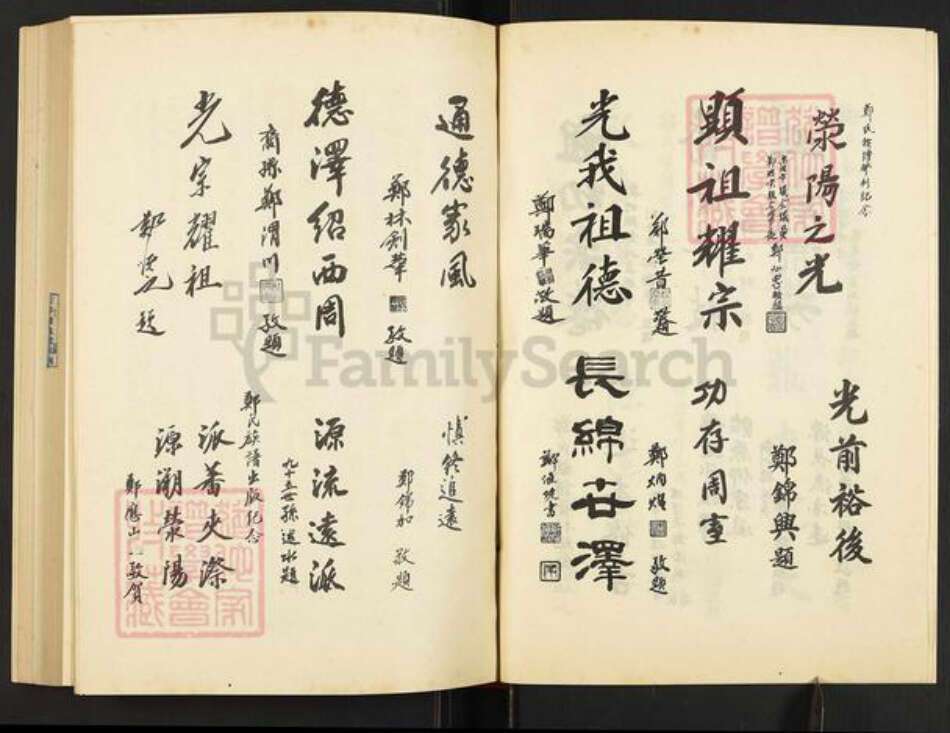 鄭氏族譜發刊紀念
滎陽之光
顯祖耀宗
鄭登昔
光我祖德
鄭瑞華 敬題
光前裕後
鄭錦興題
功存周室
鄭炳煌 敬題
長綿世澤
通德家風
鄭林劍華 敬題
德澤紹西周
裔孫鄭渭川 敬題
光宗耀祖
慎終追遠
鄭錦加 敬題
源流遠派
九十五世孫送水題
鄭氏族譜出版紀念
派蕃夾漈
源溯滎陽
鄭應山 敬賀
FamilySearch